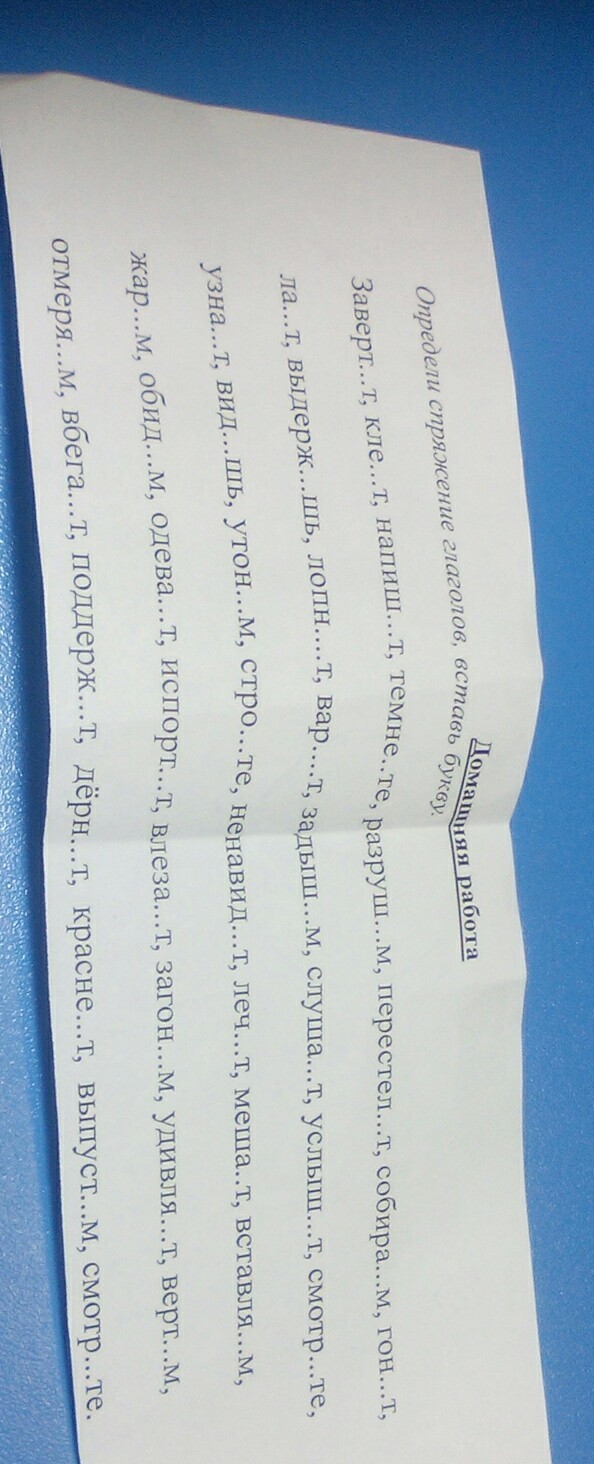 Домашняя работа
Определи спряжение глаголов, вставь букву.
Заверт...т, кле...т, напиш...т, темне..те, разруш...м, перестел...т, собира...м, гон...т,
ла...т, выдерж...шь, лопн....т, вар....т, задыш...м, слуша...т, услыш...т, смотр...те,
узна...т, вид...шь, утон...м, стро...те, ненавид...т, леч...т, меша..т, вставля...м,
жар...м, обид...м, одева...т, испорт...т, влеза...т, загон...м, удивля...т, верт...м,
отмеря...м, вбега...т, поддерж...т, дёрн...т, красне...т, выпуст...м, смотр...те.